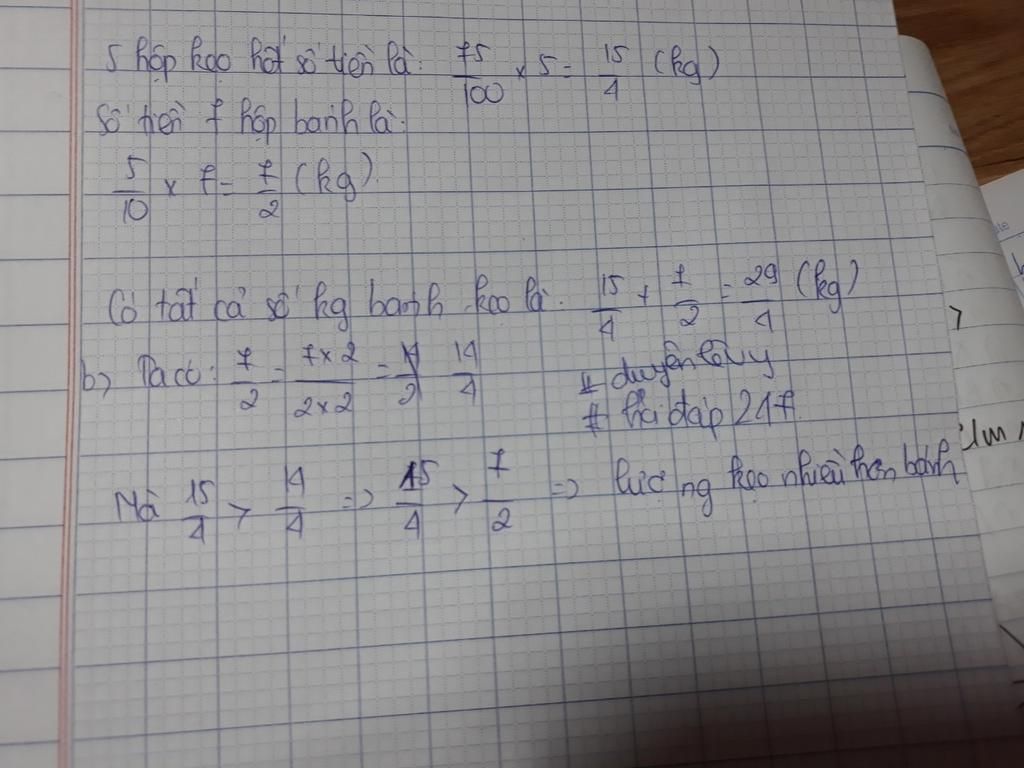 5 hộp kẹo hết số tiền là: 75/100 × 5 = 15/4 (kg)
Số tiền 7 hộp bánh là:
5/10 × 7 = 7/2 (kg)
Có tất cả số kg bánh kẹo là: 15/4 + 7/2 = 29/4 (kg)
b) Ta có: 7/2 = 7×2/2×2 = 14/4
# duyên
# hỏi đáp 247
Mà 15/4 > 14/4 => 15/4 > 7/2 => lượng kẹo nhiều hơn bánh